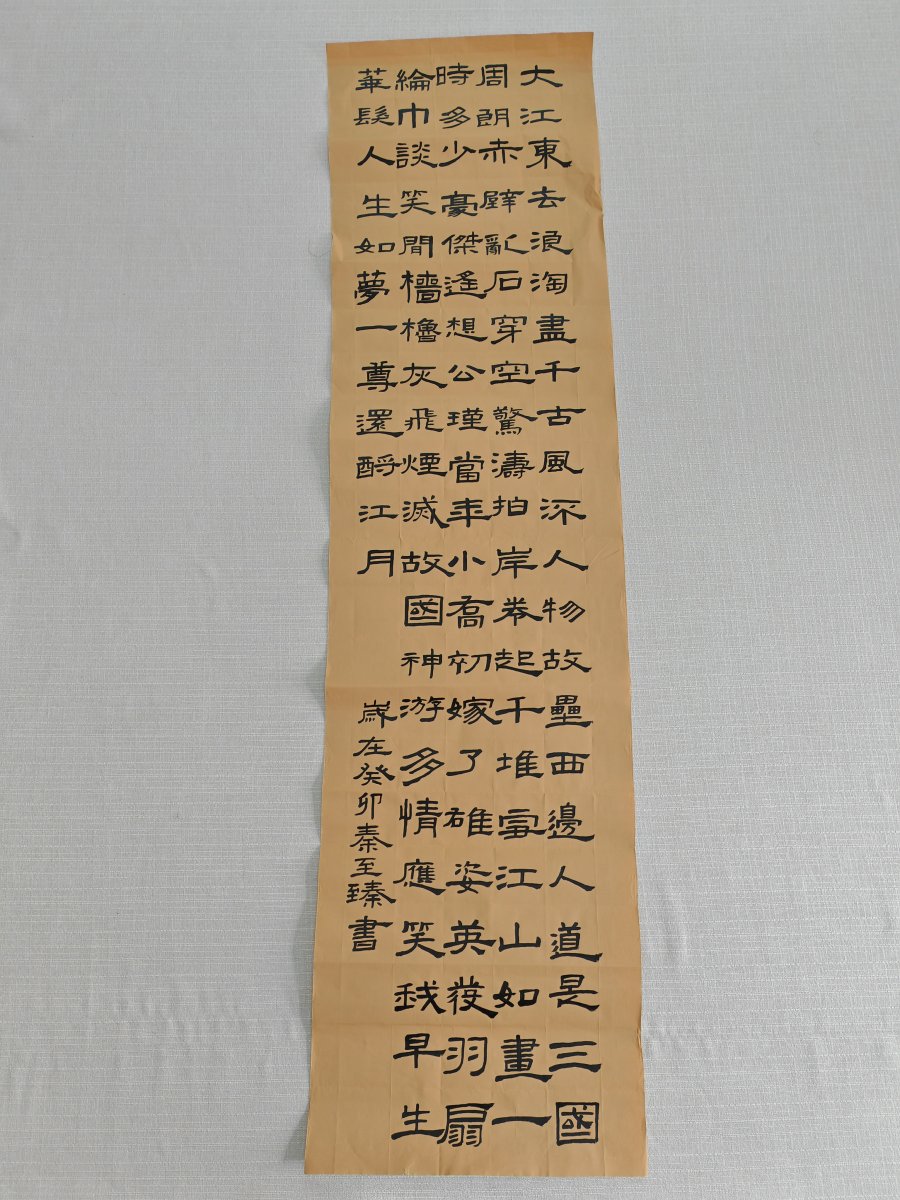 大江東去浪淘盡千古風流人物故壘西邊人道是三國
周朗赤壁亂石穿空驚濤拍岸卷起千堆雪江山如畫一
時多少豪傑遙想公瑾當年小喬初嫁了雄姿英發羽扇
綸巾談笑間檣櫓灰飛煙滅故國神游多情應笑我早生
華髮人生如夢一尊還酹江月
歲在癸卯秦至臻書